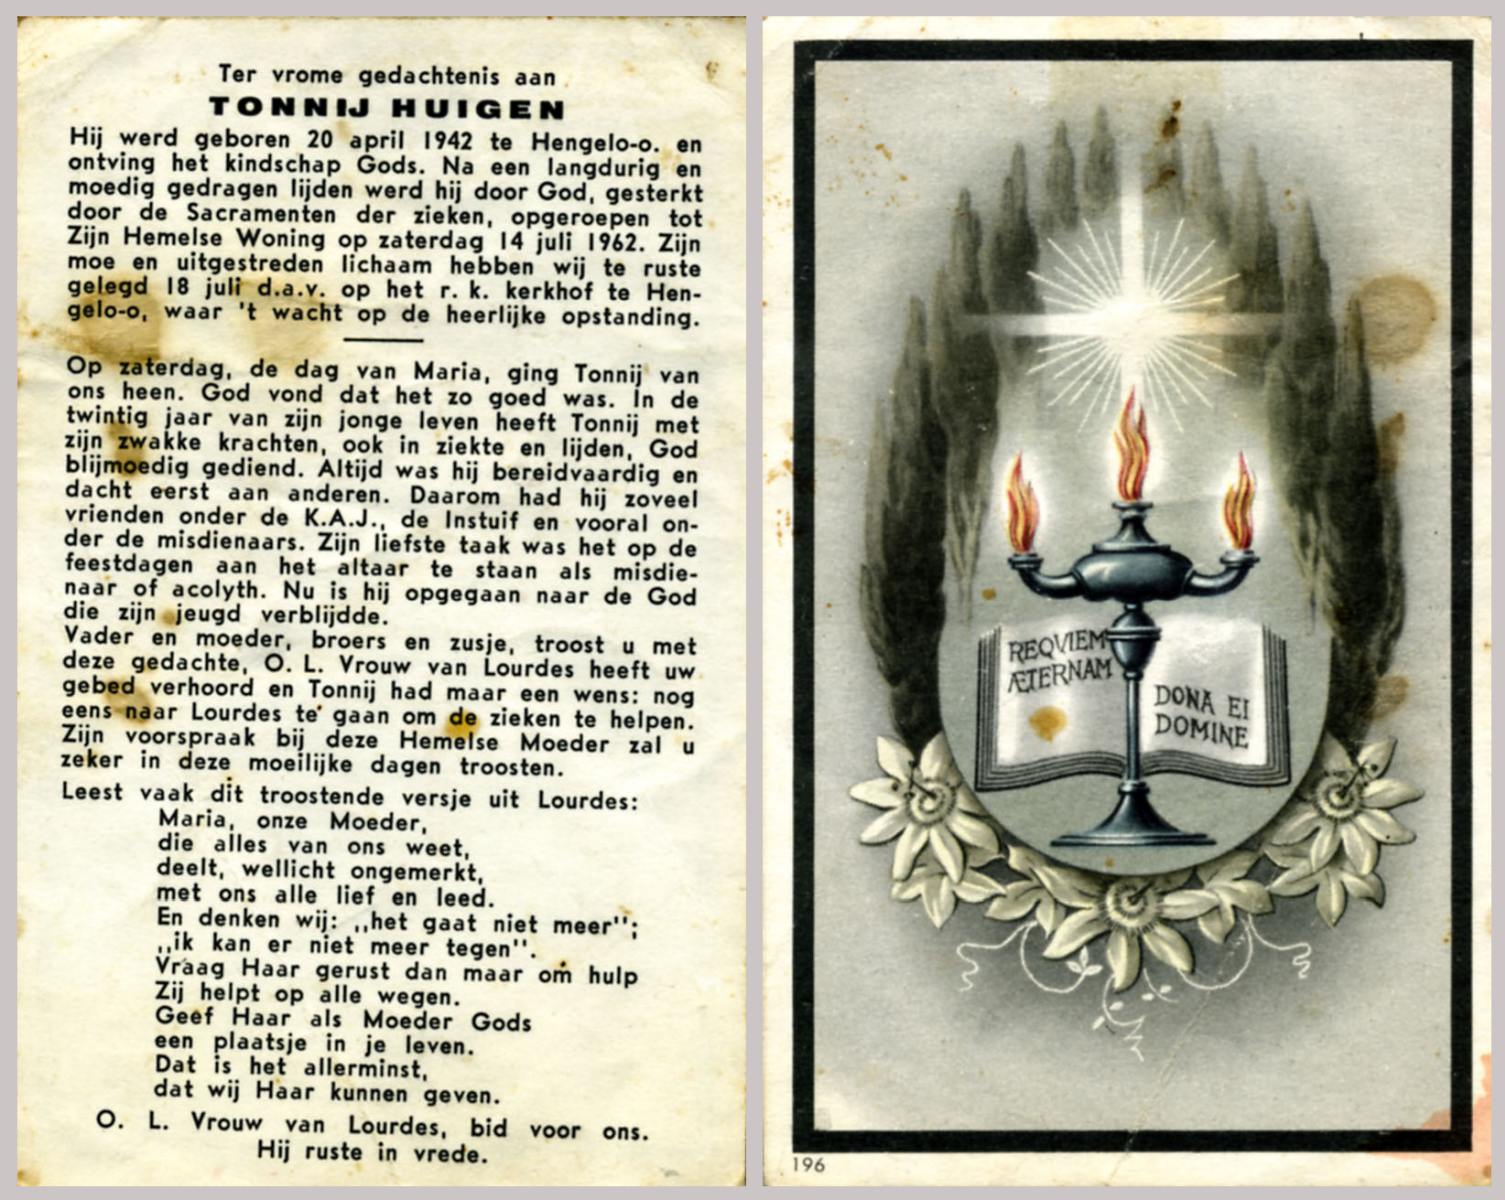 Ter vrome gedachtenis aan
TONNIJ HUIGEN
Hij werd geboren 20 april 1942 te Hengelo-o. en
ontving het kindschap Gods. Na een langdurig en
moedig gedragen lijden werd hij door God, gesterkt
door de Sacramenten der zieken, opgeroepen tot
Zijn Hemelse Woning op zaterdag 14 juli 1962. Zijn
moe en uitgestreden lichaam hebben wij te ruste
gelegd 18 juli d.a.v. op het r. k. kerkhof te Hen-
gelo-o, waar 't wacht op de heerlijke opstanding.
Op zaterdag, de dag van Maria, ging Tonnij van
ons heen. God vond dat het zo goed was. In de
twintig jaar van zijn jonge leven heeft Tonnij met
zijn zwakke krachten, ook in ziekte en lijden, God
blijmoedig gediend. Altijd was hij bereidvaardig en
dacht eerst aan anderen. Daarom had hij zoveel
vrienden onder de K.A.J., de Instuif en vooral on-
der de misdienaars. Zijn liefste taak was het op de
feestdagen aan het altaar te staan als misdie-
naar of acolyth. Nu is hij opgegaan naar de God
die zijn jeugd verblijdde.
Vader en moeder, broers en zusje, troost u met
deze gedachte, O. L. Vrouw van Lourdes heeft uw
gebed verhoord en Tonnij had maar een wens: nog
eens naar Lourdes te gaan om de zieken te helpen.
Zijn voorspraak bij deze Hemelse Moeder zal u
zeker in deze moeilijke dagen troosten.
Leest vaak dit troostende versje uit Lourdes:
Maria, onze Moeder,
die alles van ons weet,
deelt, wellicht ongemerkt,
met ons alle lief en leed.
En denken wij: ,,het gaat niet meer'';
,,ik kan er niet meer tegen''.
Vraag Haar gerust dan maar om hulp
Zij helpt op alle wegen.
Geef Haar als Moeder Gods
een plaatsje in je leven.
Dat is het allerminst,
dat wij Haar kunnen geven.
O. L. Vrouw van Lourdes, bid voor ons.
Hij ruste in vrede.
REQVIEM
ÆTERNAM
DONA EI
DOMINE
196